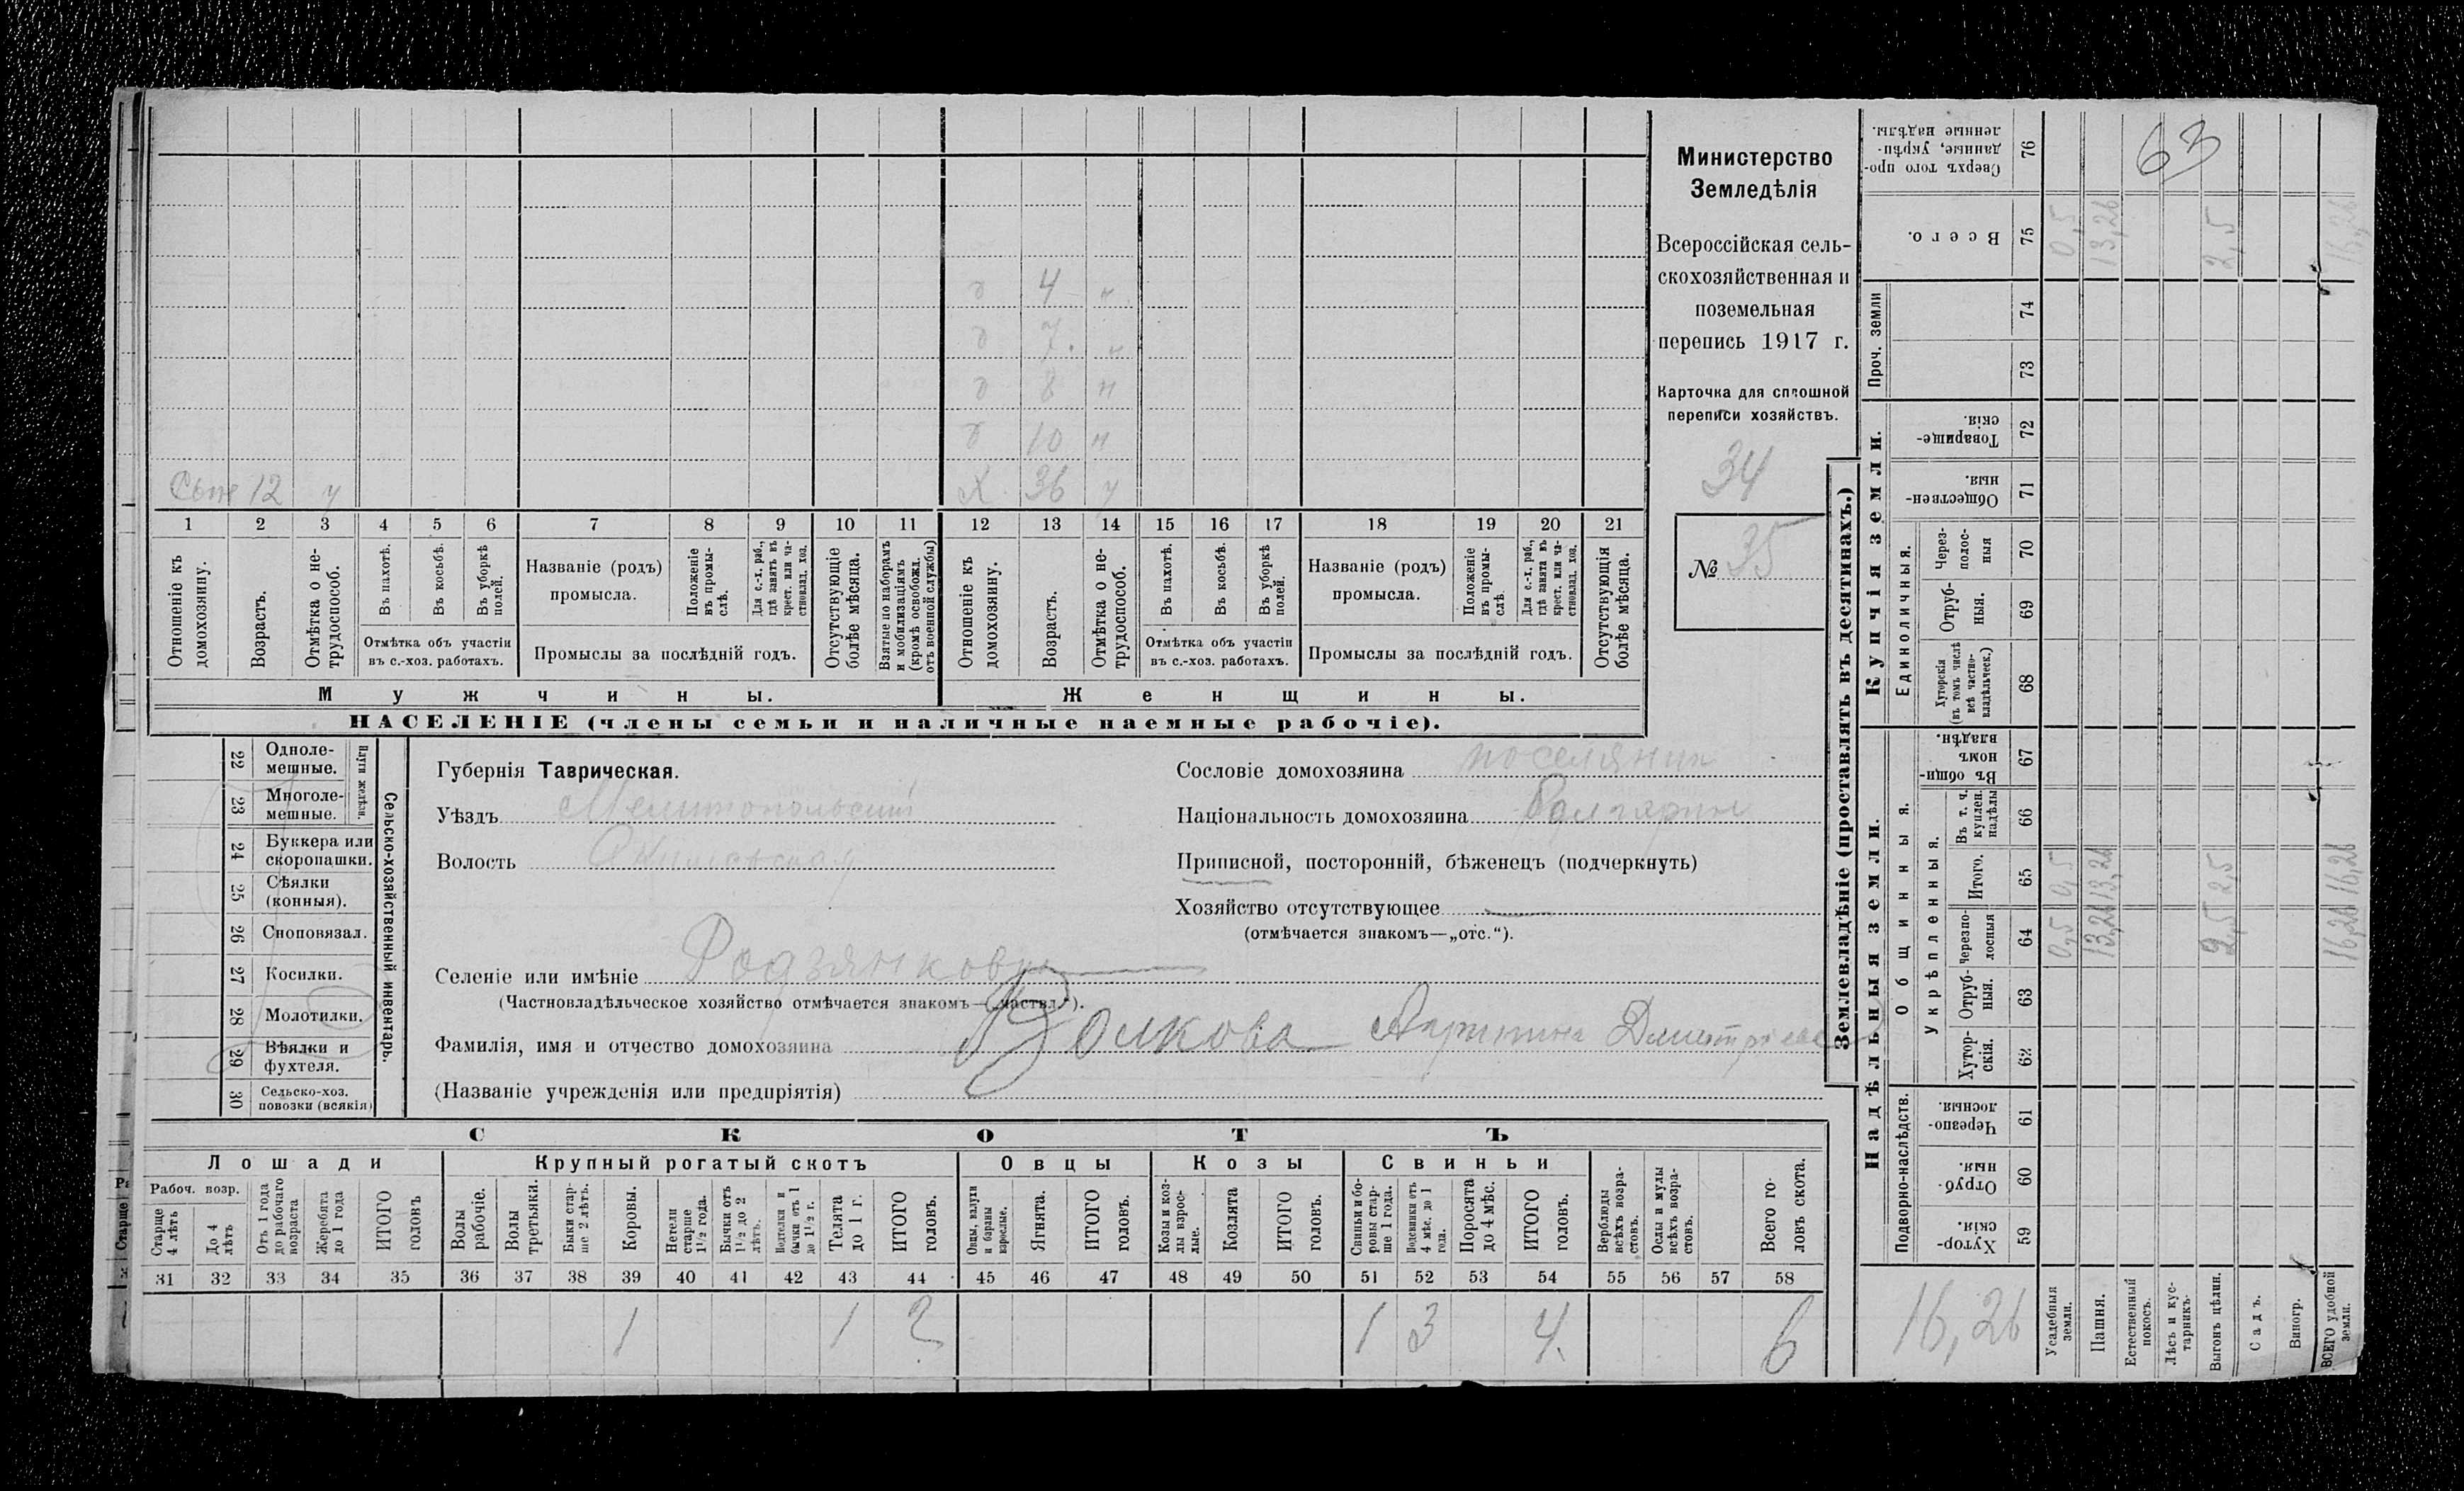 Министерство
Земледѣлія
Всероссійская сель-
скохозяйственная и
поземельная
перепись 1917 г.
Карточка для сплошной
переписи хозяйствъ.
34
№ 35
б 4 н
б 7. н
б 8 н
б 10 н
Сынъ 12 у Х 36 у
1 2 3 4 5 6 7 8 9 10 11 12 13 14 15 16 17 18 19 20 21
Отношеніе къ домохозяину.
Возрастъ.
Отмѣтка о не-трудоспособ.
Въ пахотѣ.
Въ косьбѣ.
Въ уборкѣ полей.
Отмѣтка объ участіи
въ с.-хоз. работахъ.
Названіе (родъ)
промысла.
Положеніе въ промы-слѣ.
Для с.-х. раб., гдѣ занятъ въ крест. или ча-стновлад. хоз.
Промыслы за послѣдній годъ.
Отсутствующіе болѣе мѣсяца.
Взятые по наборамъ и мобилизаціямъ (кромѣ освобожд. отъ военной службы)
Отношеніе къ домохозяину.
Возрастъ.
Отмѣтка о не-трудоспособ.
Въ пахотѣ.
Въ косьбѣ.
Въ уборкѣ полей.
Отмѣтка объ участіи
въ с.-хоз. работахъ.
Названіе (родъ)
промысла.
Положеніе въ промы-слѣ.
Для с.-х. раб., гдѣ занята въ крест. или ча-стновлад. хоз.
Промыслы за послѣдній годъ.
Отсутствующія болѣе мѣсяца.
Мужчины. Женщины.
НАСЕЛЕНІЕ (члены семьи и наличные наемные рабочіе).
22 Одноле-мешные.
23 Многоле-мешные.
Плуги желѣзн.
24 Буккера или скоропашки.
25 Сѣялки (конныя).
26 Сноповязал.
27 Косилки.
28 Молотилки.
29 Вѣялки и фухтеля.
30 Сельско-хоз. повозки (всякія)
Сельско-хозяйственный инвентарь.
Губернія Таврическая.
Уѣздъ Мелитопольскій
Волость Акимовская
Сословіе домохозяина поселянин
Національность домохозяина Болгарин
Приписной, посторонній, бѣженецъ (подчеркнуть)
Хозяйство отсутствующее
(отмѣчается знакомъ—„отс.“).
Селеніе или имѣніе Родзянковка
(Частновладѣльческое хозяйство отмѣчается знакомъ—(„частвл.“).
Фамилія, имя и отчество домохозяина Волкова Дмитріева
(Названіе учрежденія или предпріятія)
СКОТЪ
Лошади Крупный рогатый скотъ Овцы Козы Свиньи
Рабоч. возр.
Старше 4 лѣтъ
До 4 лѣтъ
Отъ 1 года до рабочаго возраста
Жеребята до 1 года
ИТОГО головъ
Волы рабочіе.
Волы третьяки.
Быки стар-ше 2 лѣтъ.
Коровы.
Нетели старше 1½ года.
Бычки отъ 1½ до 2 лѣтъ.
Подтелки и бычки отъ 1 до 1½ г.
Телята до 1 г.
ИТОГО головъ.
Овцы, валухи и бараны взрослые.
Ягнята.
ИТОГО головъ.
Козы и коз-лы взрос-лые.
Козлята
ИТОГО головъ.
Свиньи и бо-ровы стар-ше 1 года.
Подсвинки отъ 4 мѣс. до 1 года.
Поросята до 4 мѣс.
ИТОГО головъ.
Верблюды всѣхъ возра-стовъ.
Ослы и мулы всѣхъ возра-стовъ.
Всего го-ловъ скота.
31 32 33 34 35 36 37 38 39 40 41 42 43 44 45 46 47 48 49 50 51 52 53 54 55 56 57 58
1 1 2 1 3 4. 6
Землевладѣніе (проставлять въ десятинахъ.)
Надѣльныя земли. Купчія земли. Проч. земли
Подворно-наслѣдств.
Общинныя.
Укрѣпленныя.
Единоличныя.
76 Сверхъ того про-данные, укрѣп-ленные надѣлы.
63
75 Всего. 0,5 13,26 2,5 16,26
74
73
72 Товарище-скія.
71 Обществен-ныя.
70 Через-полос-ныя
69 Отруб-ныя.
68 Хуторскія (въ томъ числѣ всѣ частно-владѣльческ.)
67 Въ общин-номъ владѣн.
66 Въ т. ч. куплен. надѣлы
65 Итого. 0,5 13,26 2,5 16,26
64 Черезпо-лосныя 0,5 13,26 2,5 16,26
63 Отруб-ныя.
62 Хутор-скія.
61 Черезпо-лосныя.
60 Отруб-ныя.
59 Хутор-скія.
16,26
Усадебныя земли.
Пашня.
Естественный покосъ.
Лѣсъ и кус-тарникъ.
Выгонъ цѣлин.
Садъ.
Виногр.
ВСЕГО удобной земли.